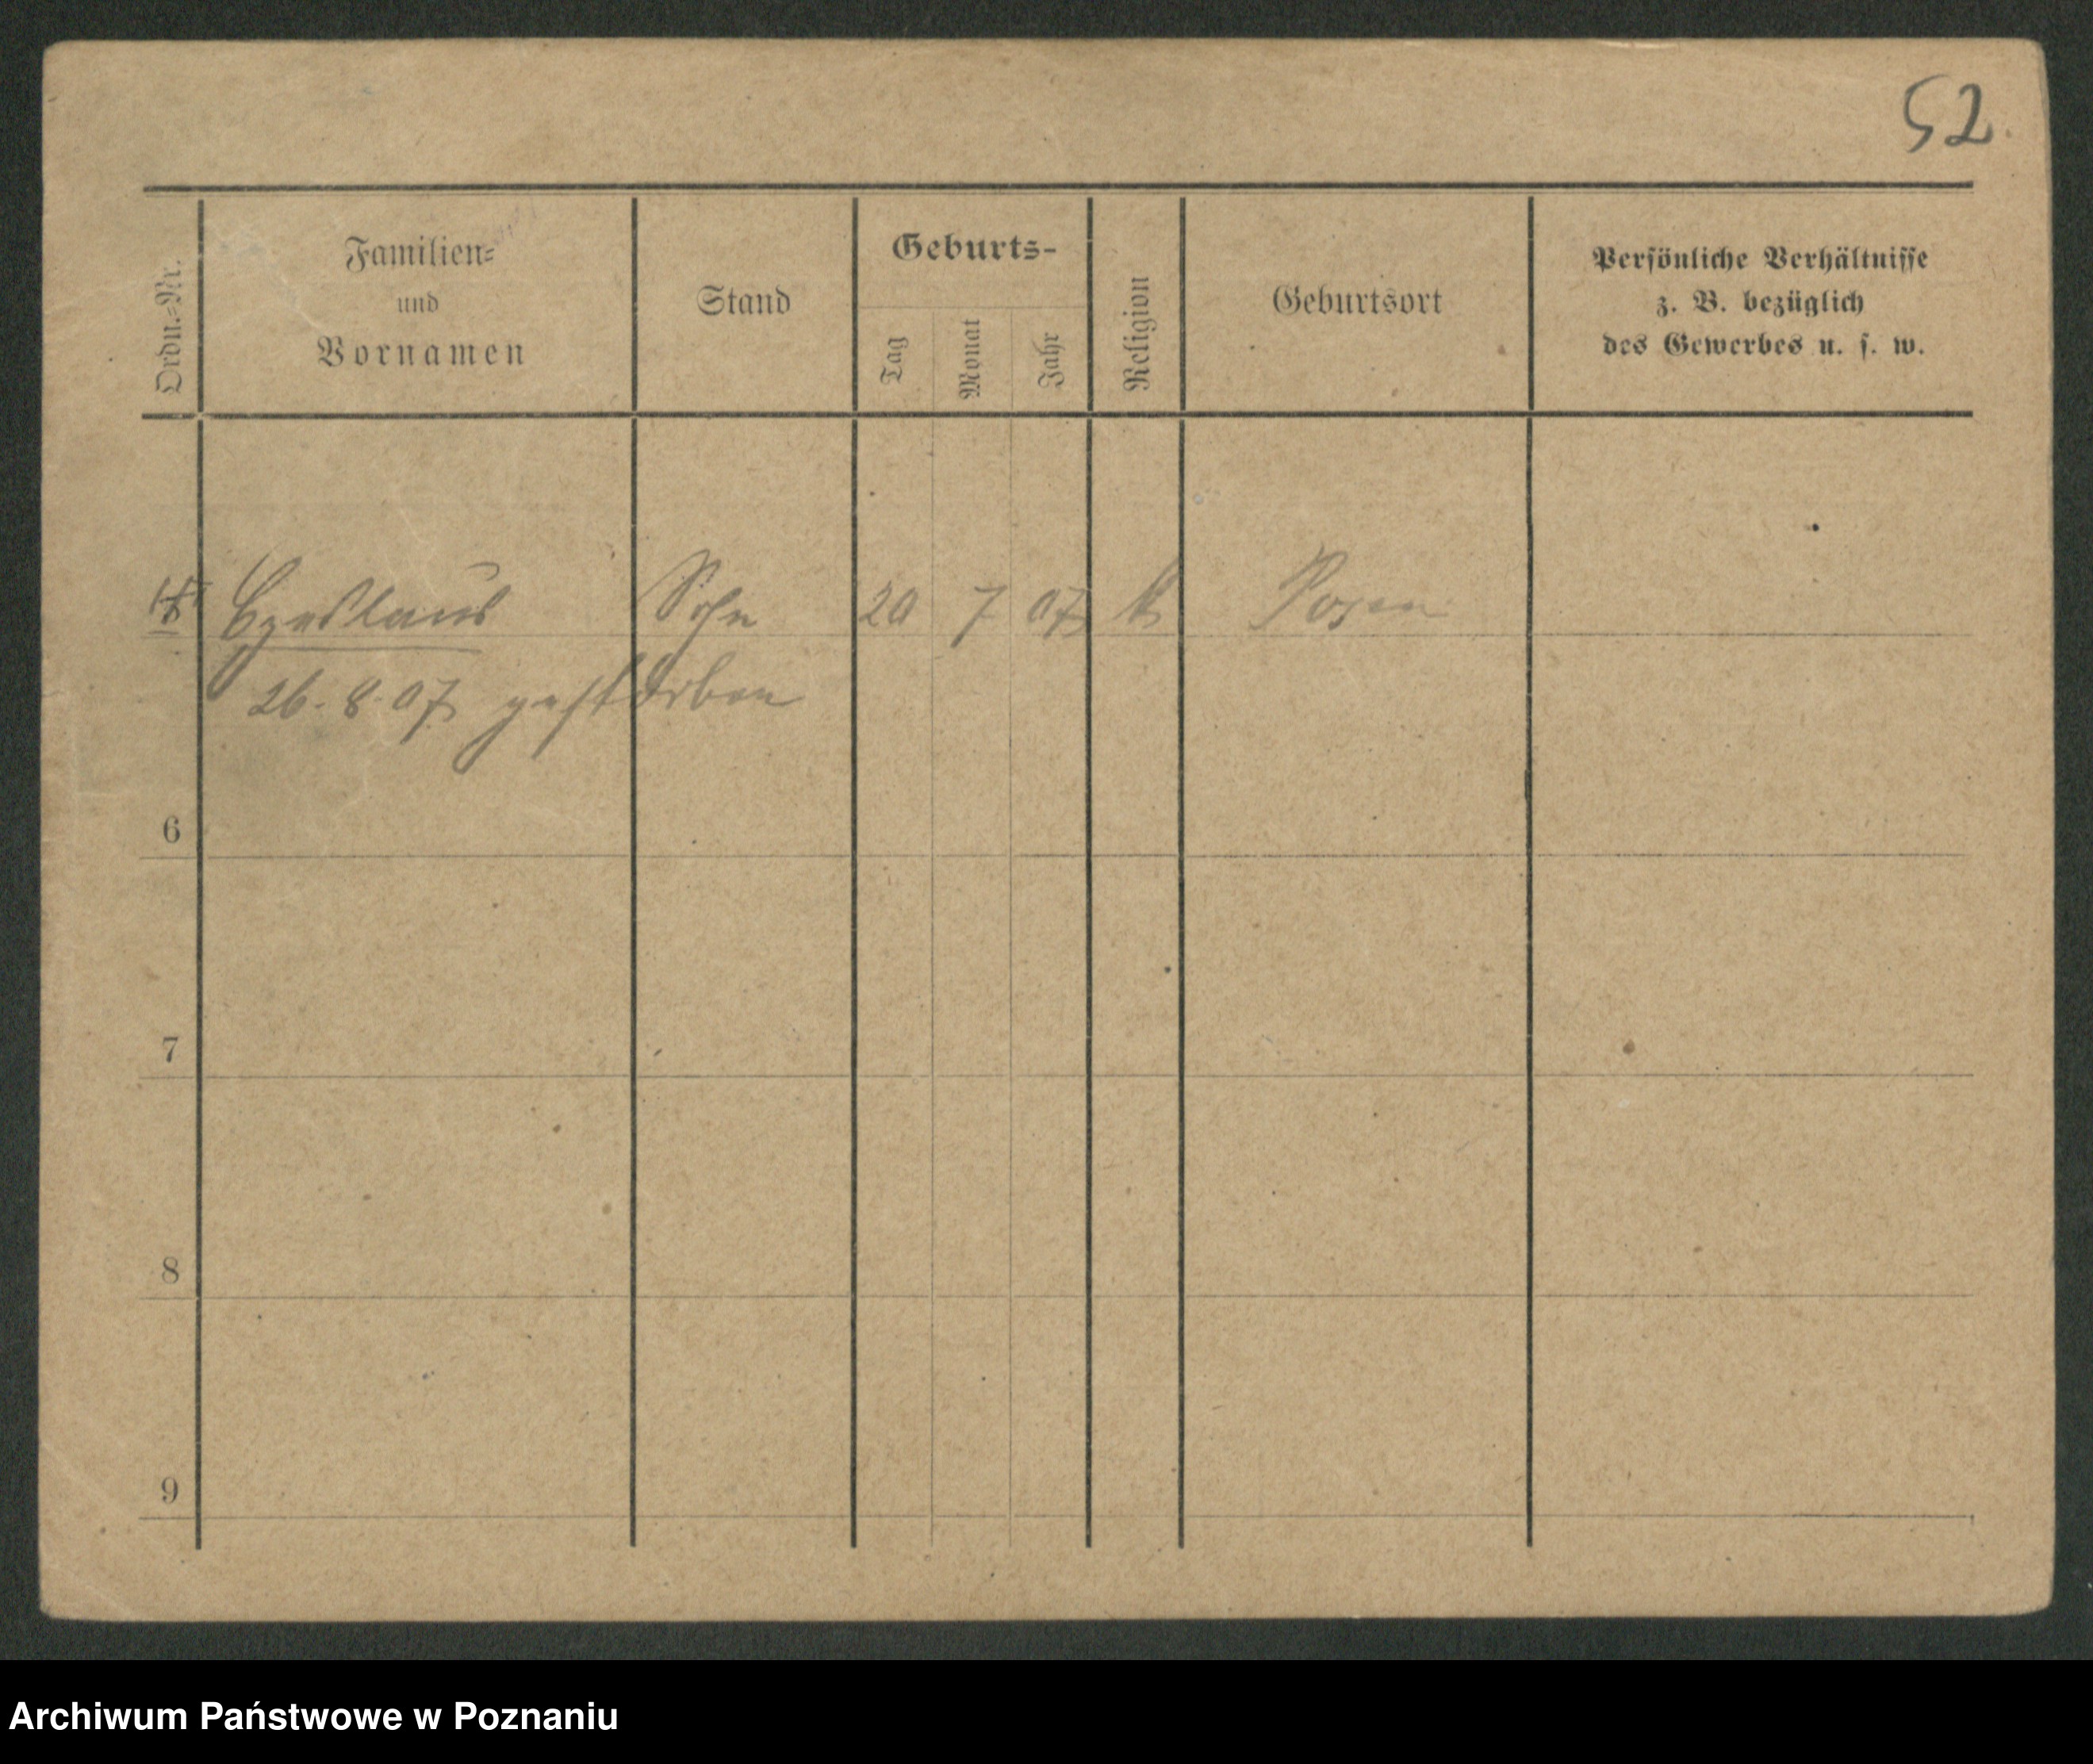 52.
Ordn.-Nr.
Familien-
und
Vornamen
Stand
Geburts-
Tag
Monat
Jahr
Religion
Geburtsort
Persönliche Verhältnisse
z. B. bezüglich
des Gewerbes u. s. w.
Czeslaus Sohn 20 7 07 k Posen
26. 8. 07 gestorben
6
7
8
9
Archiwum Państwowe w Poznaniu